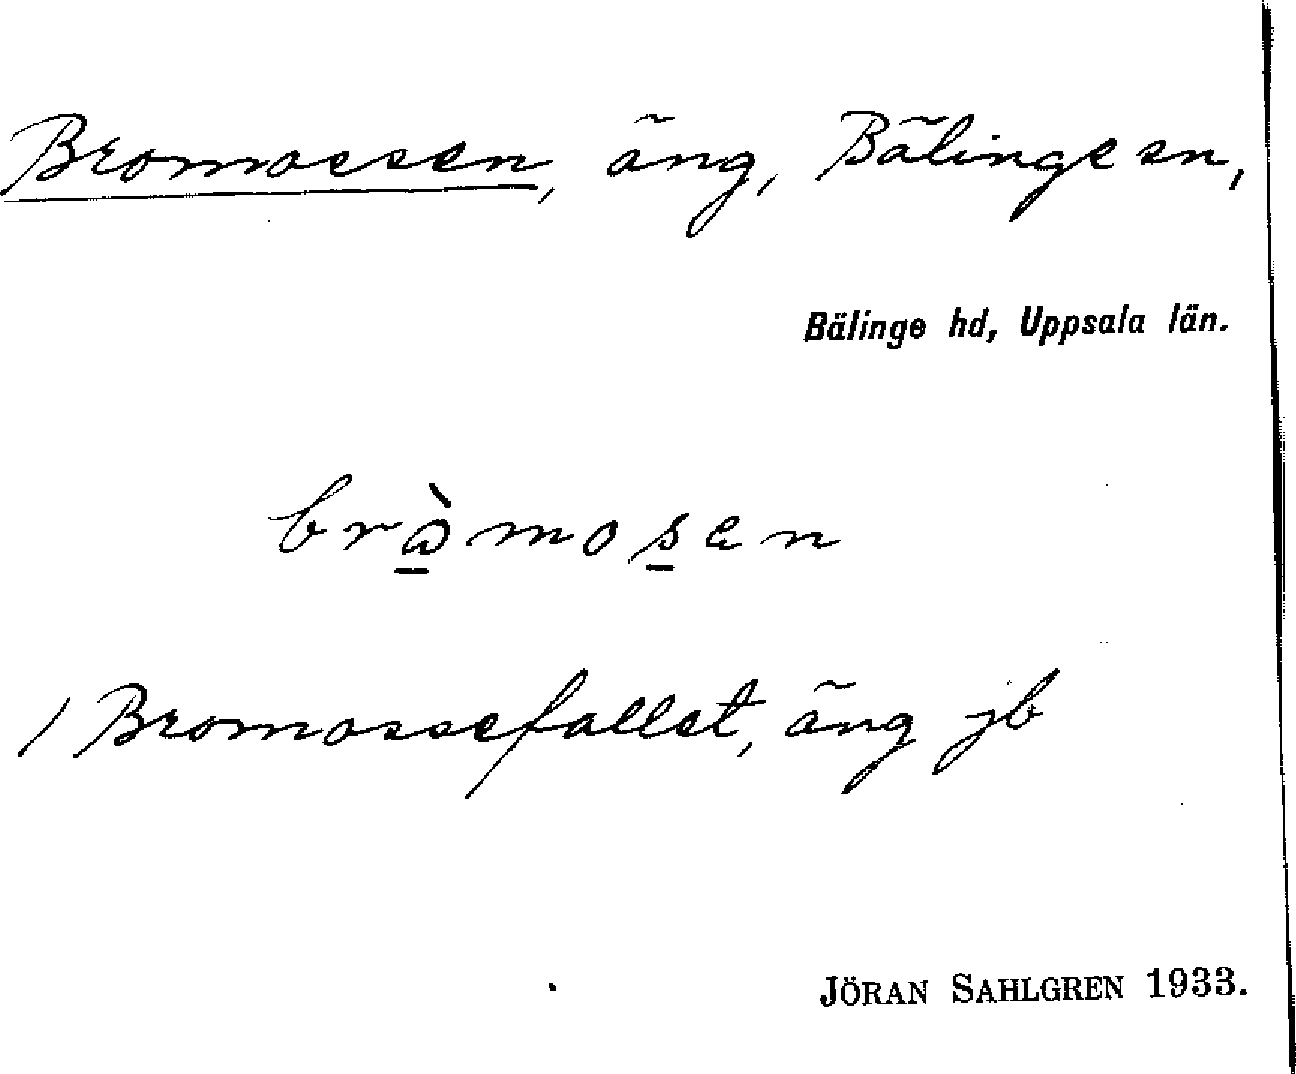 Bromossen, äng, Bälinge sn,
Bälinge hd, Uppsala län.
brὼ̲mos̲en
/ Bromossefallet, äng jb
JÖRAN SAHLGREN 1933.